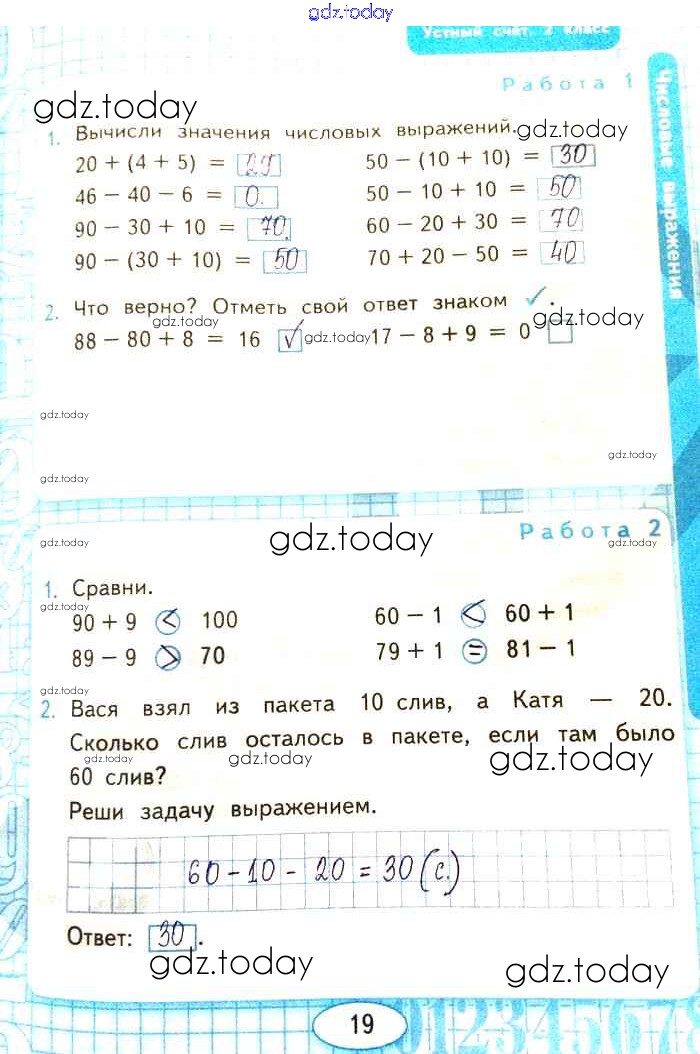 gdz.today
Устный счёт. 2 класс
Работа 1
gdz.today
1. Вычисли значения числовых выражений. gdz.today
20 + (4 + 5) = 29 50 − (10 + 10) = 30
46 − 40 − 6 = 0. 50 − 10 + 10 = 50
90 − 30 + 10 = 70. 60 − 20 + 30 = 70
90 − (30 + 10) = 50 70 + 20 − 50 = 40
Числовые выражения
2. Что верно? Отметь свой ответ знаком ✓.
gdz.today gdz.today
88 − 80 + 8 = 16 ✓ gdz.today 17 − 8 + 9 = 0 ☐
gdz.today
gdz.today
gdz.today
Работа 2
gdz.today gdz.today gdz.today
1. Сравни.
gdz.today
90 + 9 < 100 60 − 1 < 60 + 1
89 − 9 > 70 79 + 1 = 81 − 1
gdz.today
2. Вася взял из пакета 10 слив, а Катя — 20.
Сколько слив осталось в пакете, если там было
gdz.today gdz.today gdz.today
60 слив?
Реши задачу выражением.
60 − 10 − 20 = 30 (с.)
Ответ: 30.
gdz.today gdz.today
19
012345678